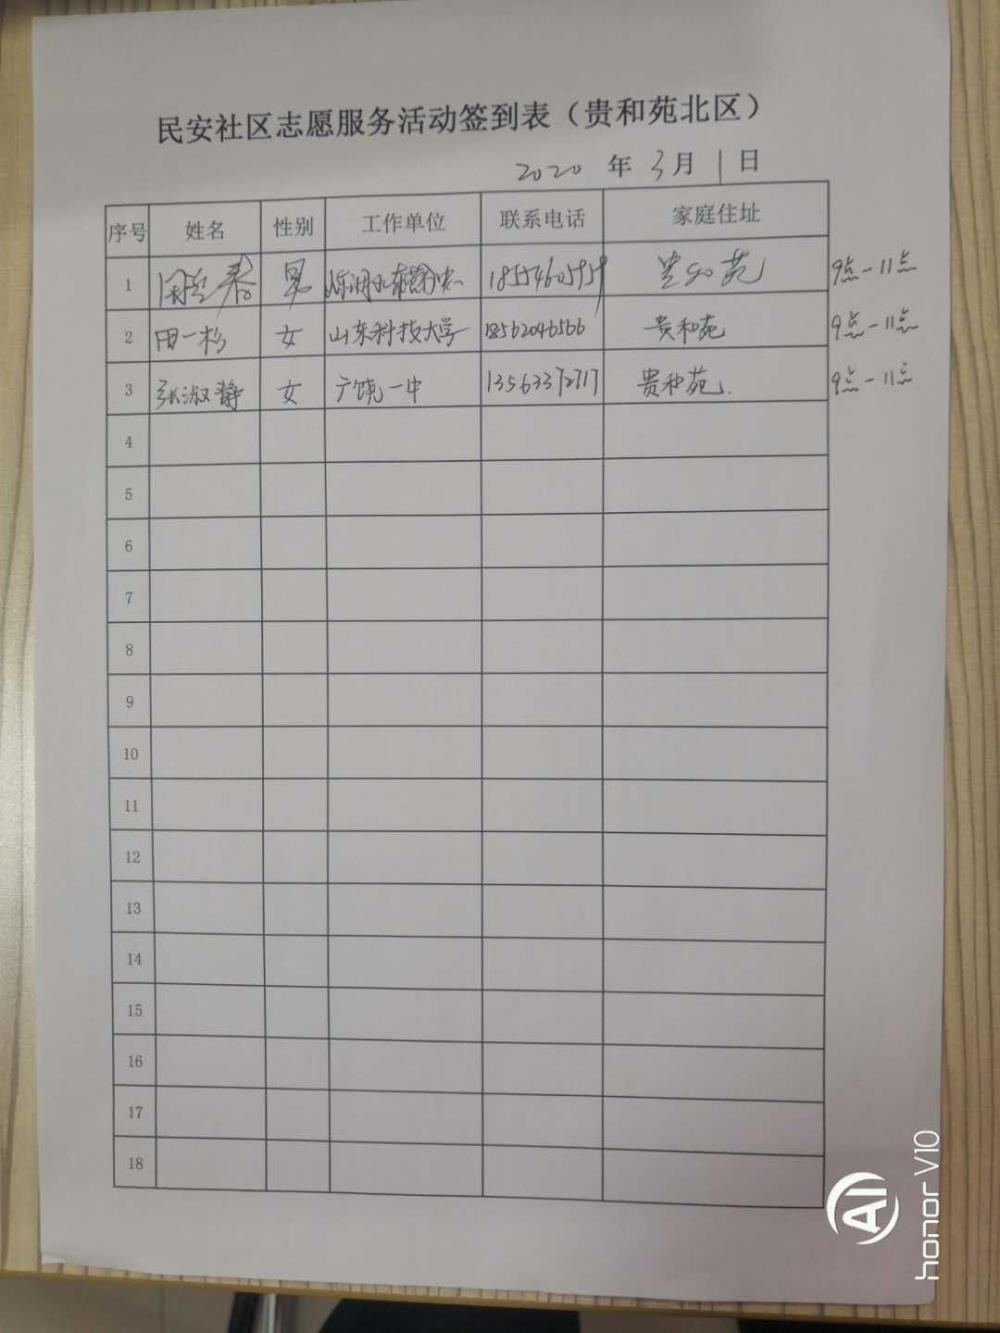 民安社区志愿服务活动签到表（贵和苑北区）
2020 年 3月 1日
序号 姓名 性别 工作单位 联系电话 家庭住址
1 男 18554605959 贵和苑 9点-11点
2 田一杉 女 山东科技大学 18562046566 贵和苑 9点-11点
3 张淑静 女 广饶一中 13563372717 贵和苑. 9点-11点
4
5
6
7
8
9
10
11
12
13
14
15
16
17
18
AI honor V10